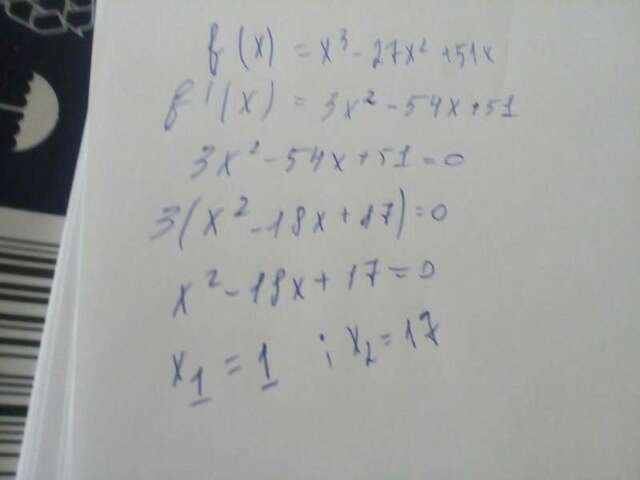 f(x) = x³ - 27x² + 51x
f'(x) = 3x² - 54x + 51
3x² - 54x + 51 = 0
3(x² - 18x + 17) = 0
x² - 18x + 17 = 0
x₁ = 1 ; x₂ = 17